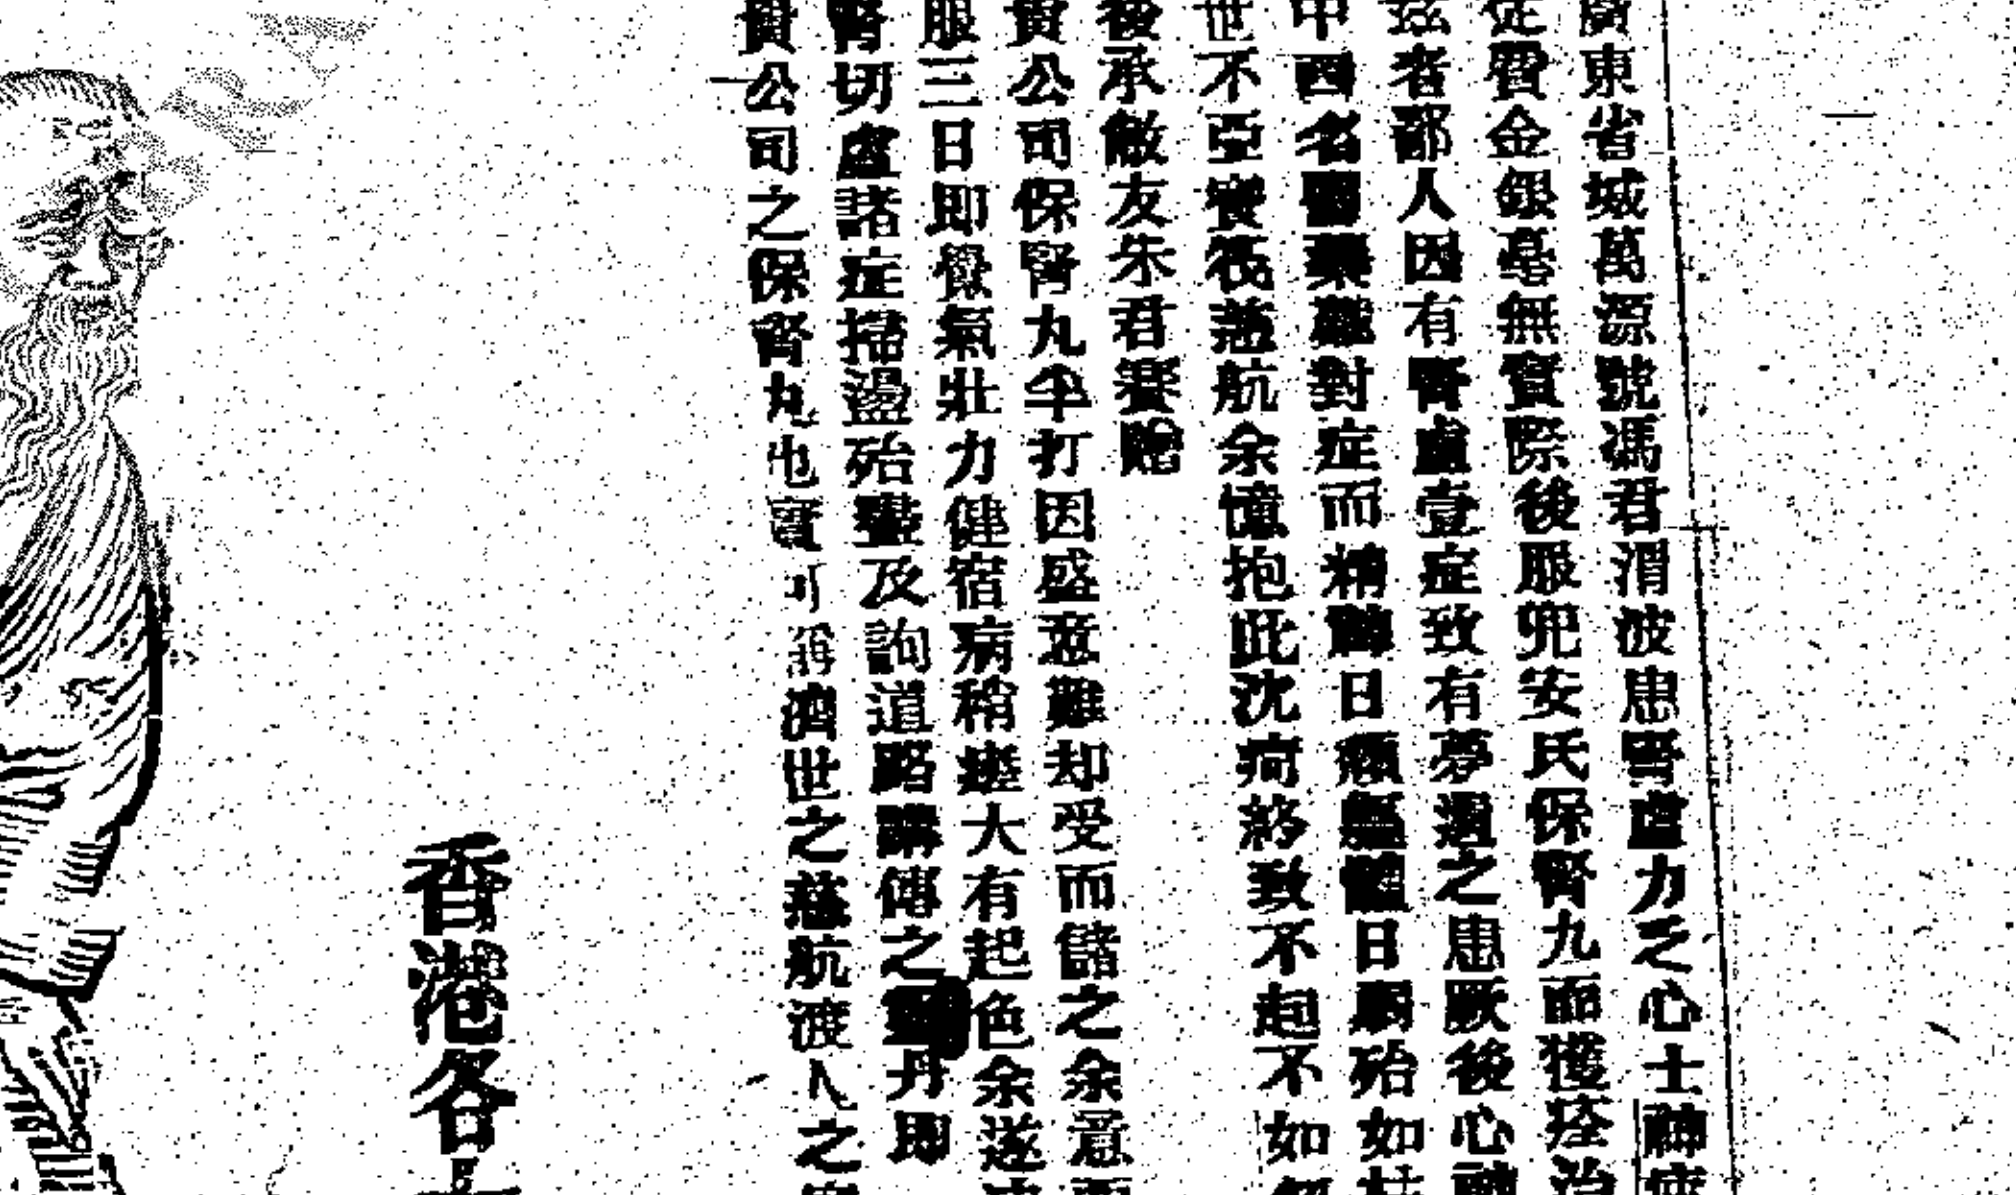 廣東省城萬源號馮君渭波患腎虛力乏心士神疲
從費金銀毫無實際後服兜安氏保腎丸而獲痊治
茲者鄙人因有腎虛壹症致有夢遇之患厥後心神
中西名醫藥難對症而精神日頹軀體日弱殆如枯
世不亞寶筏慈航余憶抱此沈疴終致不起不如
後承敝友朱君賽贈
貴公司保腎丸半打因盛意難却受而儲之余意而
服三日即覺氣壯力健宿病稍瘥大有起色余遂
腎切虛諸症掃盪殆盡及詢道路購傳之靈丹即
貴公司之保腎丸也實可稱濟世之慈航渡人之寶
香港各